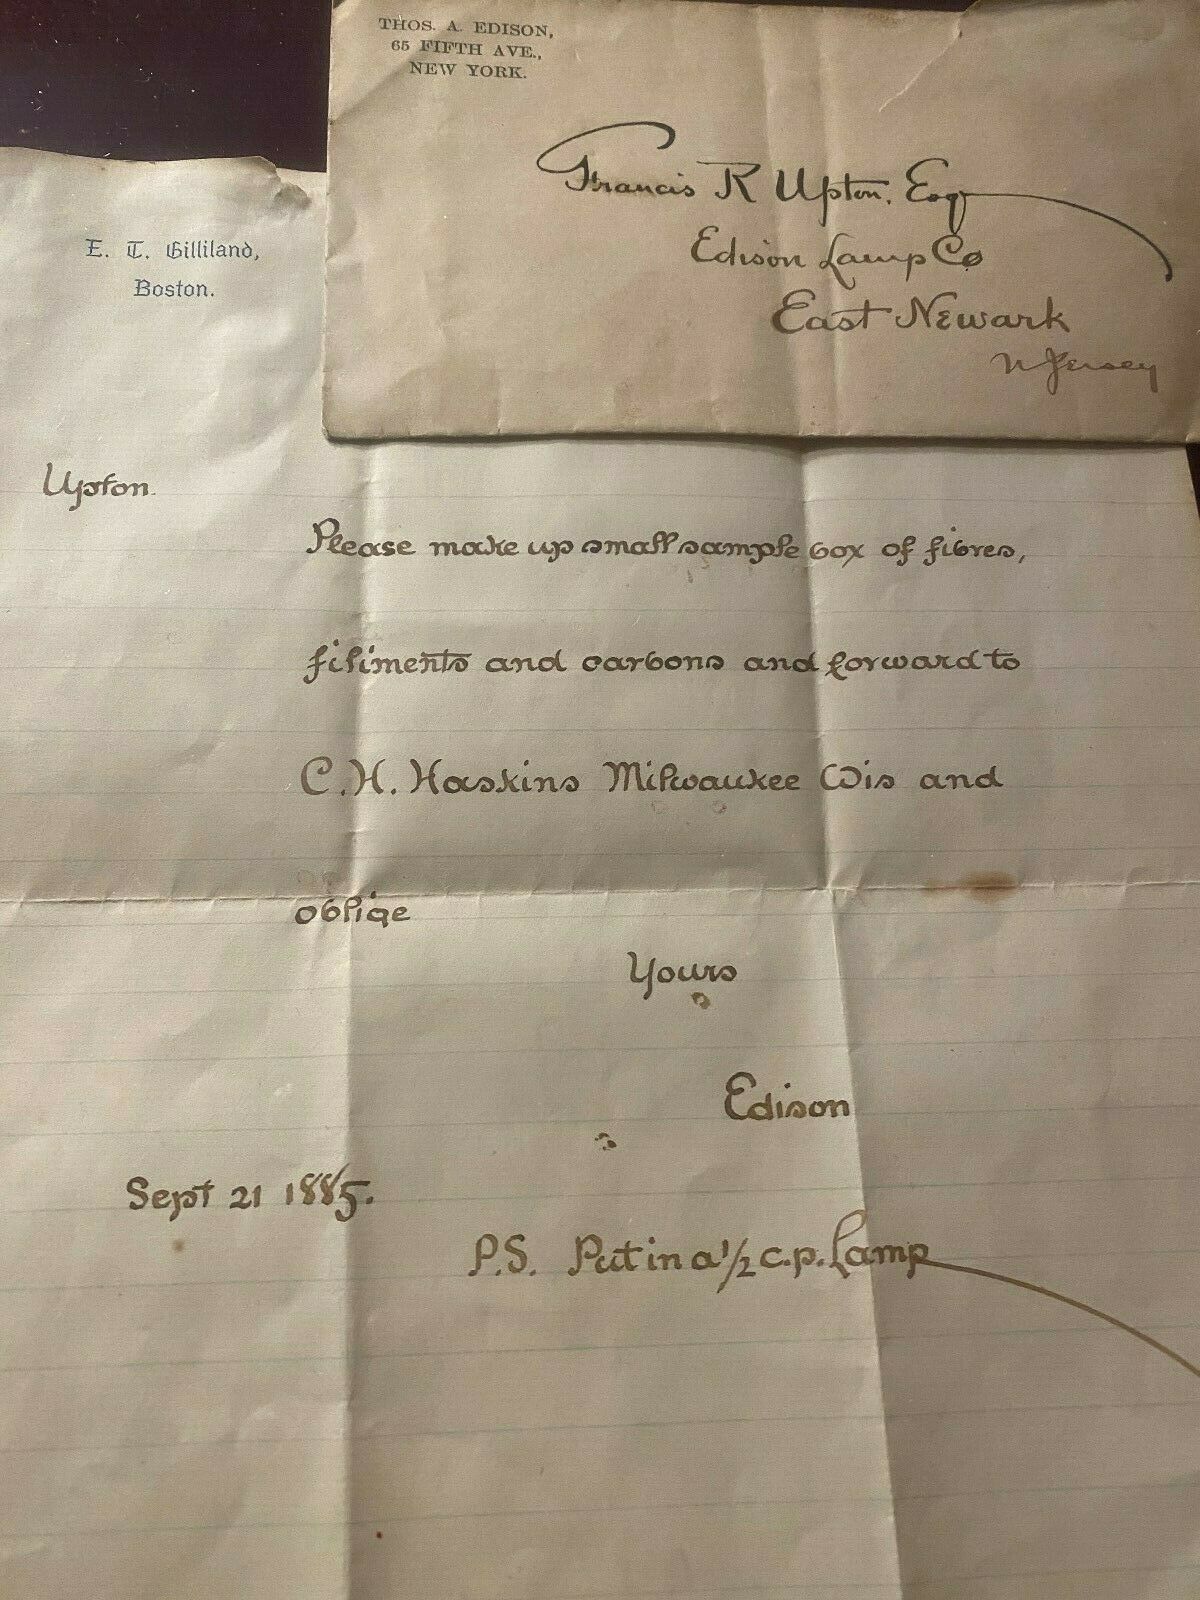 THOS. A. EDISON,
65 FIFTH AVE.,
NEW YORK.
Francis R Upton, Esq
Edison Lamp Co
East Newark
N Jersey
E. T. Gilliland,
Boston.
Upton.
Please make up small sample box of fibres,
filiments and carbons and forward to
C.H. Haskins Milwaukee Wis and
oblige
Yours
Edison
Sept 21 1885.
P.S. Put in a 1/2 c.p. Lamp